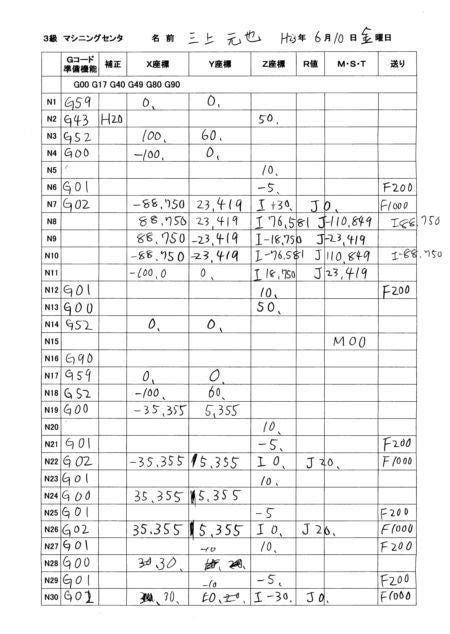 3級 マシニングセンタ 名 前 三上 元也 H23年 6月10日金曜日
Gコード 準備機能 補正 X座標 Y座標 Z座標 R値 M・S・T 送り
G00 G17 G40 G49 G80 G90
N1 G59 0. 0.
N2 G43 H20 50.
N3 G52 100. 60.
N4 G00 -100. 0.
N5 10.
N6 G01 -5. F200
N7 G02 -88.750 23.419 I +30. J 0. F1000
N8 88.750 23.419 I 76.581 J-110.849 I-88.750
N9 88.750 -23.419 I-18.750 J-23.419
N10 -88.750 -23.419 I-76.581 J110.849 I-88.750
N11 -100.0 0. I 18.750 J23.419
N12 G01 10. F200
N13 G00 50.
N14 G52 0. 0.
N15 M00
N16 G90
N17 G59 0. 0.
N18 G52 -100. 60.
N19 G00 -35.355 5.355
N20 10.
N21 G01 -5. F200
N22 G02 -35.355 5.355 I 0. J 20. F1000
N23 G01 10.
N24 G00 35.355 5.355
N25 G01 -5 F200
N26 G02 35.355 5.355 I 0. J 20. F1000
N27 G01 10. F200
N28 G00 30. -10
N29 G01 -5. F200
N30 30. -10 I -30. J 0. F1000